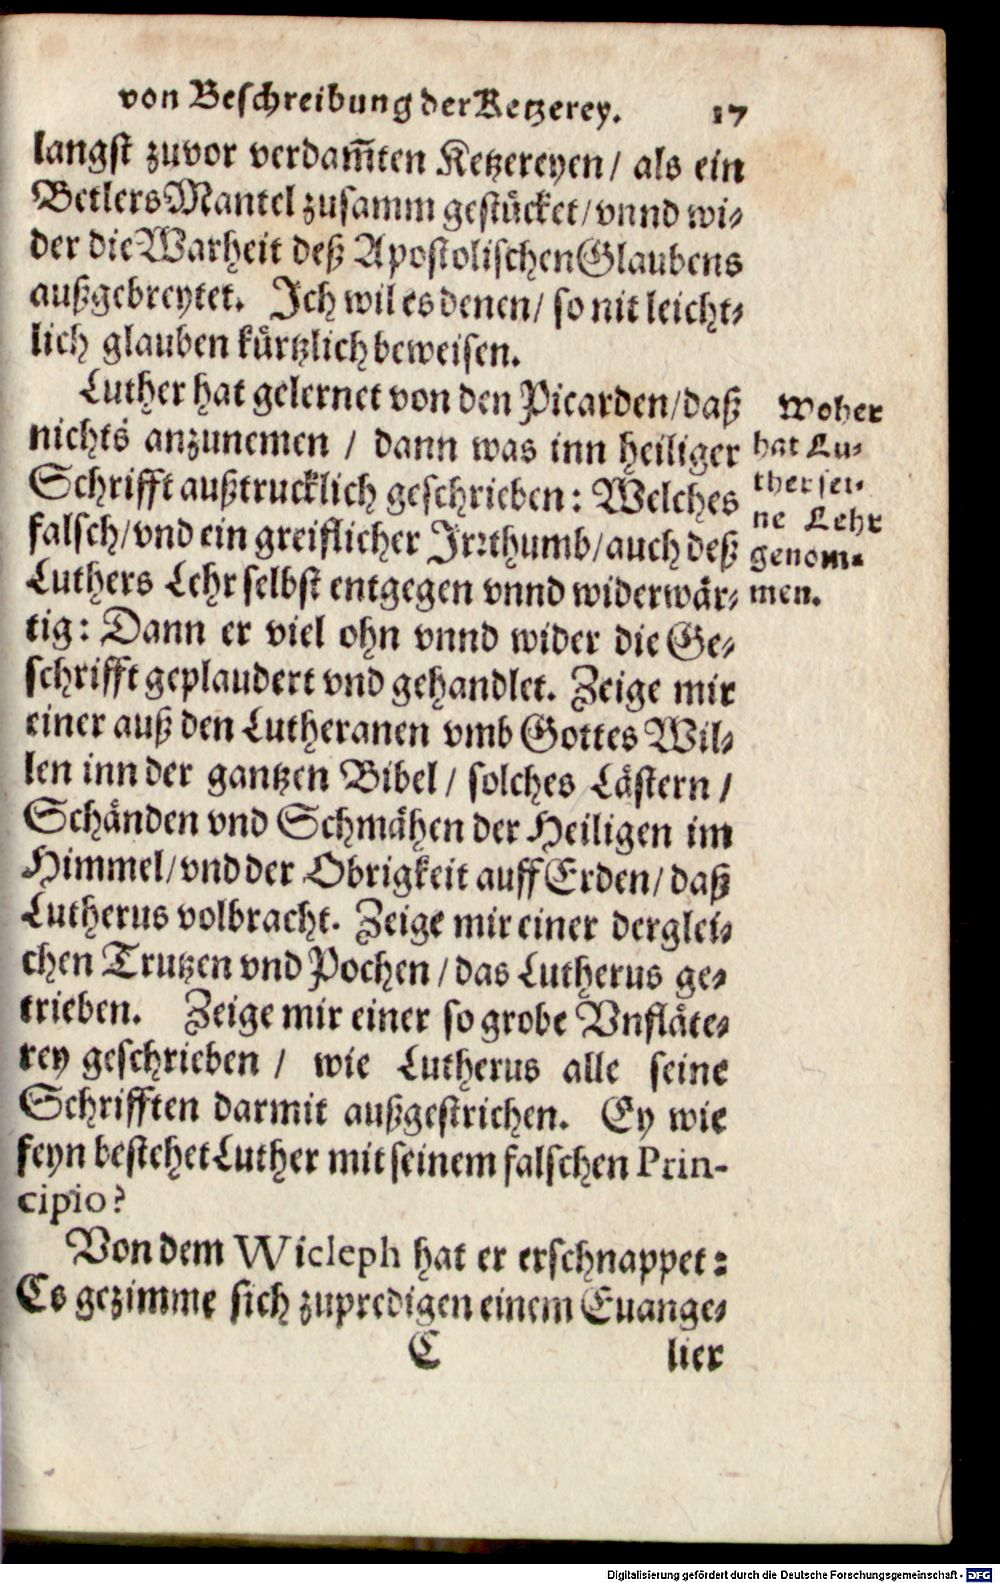 von Beschreibung der Ketzerey. 17
langst zuvor verdam̃ten Ketzereyen / als ein
Betlers Mantel zusamm gestücket / vnnd wi-
der die Warheit deß Apostolischen Glaubens
außgebreytet. Ich wil es denen / so nit leicht-
lich glauben kürtzlich beweisen.
Luther hat gelernet von den Picarden / daß
nichts anzunemen / dann was inn heiliger
Schrifft außtrucklich geschrieben: Welches
falsch / vnd ein greiflicher Irrthumb / auch deß
Luthers Lehr selbst entgegen vnnd widerwär-
tig: Dann er viel ohn vnnd wider die Ge-
schrifft geplaudert vnd gehandlet. Zeige mir
einer auß den Lutheranen vmb Gottes Wil-
len inn der gantzen Bibel / solches Lästern /
Schänden vnd Schmähen der Heiligen im
Himmel / vnd der Obrigkeit auff Erden / daß
Lutherus volbracht. Zeige mir einer derglei-
chen Trutzen vnd Pochen / das Lutherus ge-
trieben. Zeige mir einer so grobe Vnfläte-
rey geschrieben / wie Lutherus alle seine
Schrifften darmit außgestrichen. Ey wie
feyn bestehet Luther mit seinem falschen Prin-
cipio?
Von dem Wicleph hat er erschnappet:
Es gezimme sich zupredigen einem Euange-
C lier
Woher
hat Lu-
ther sei-
ne Lehr
genom-
men.
Digitalisierung gefördert durch die Deutsche Forschungsgemeinschaft - DFG